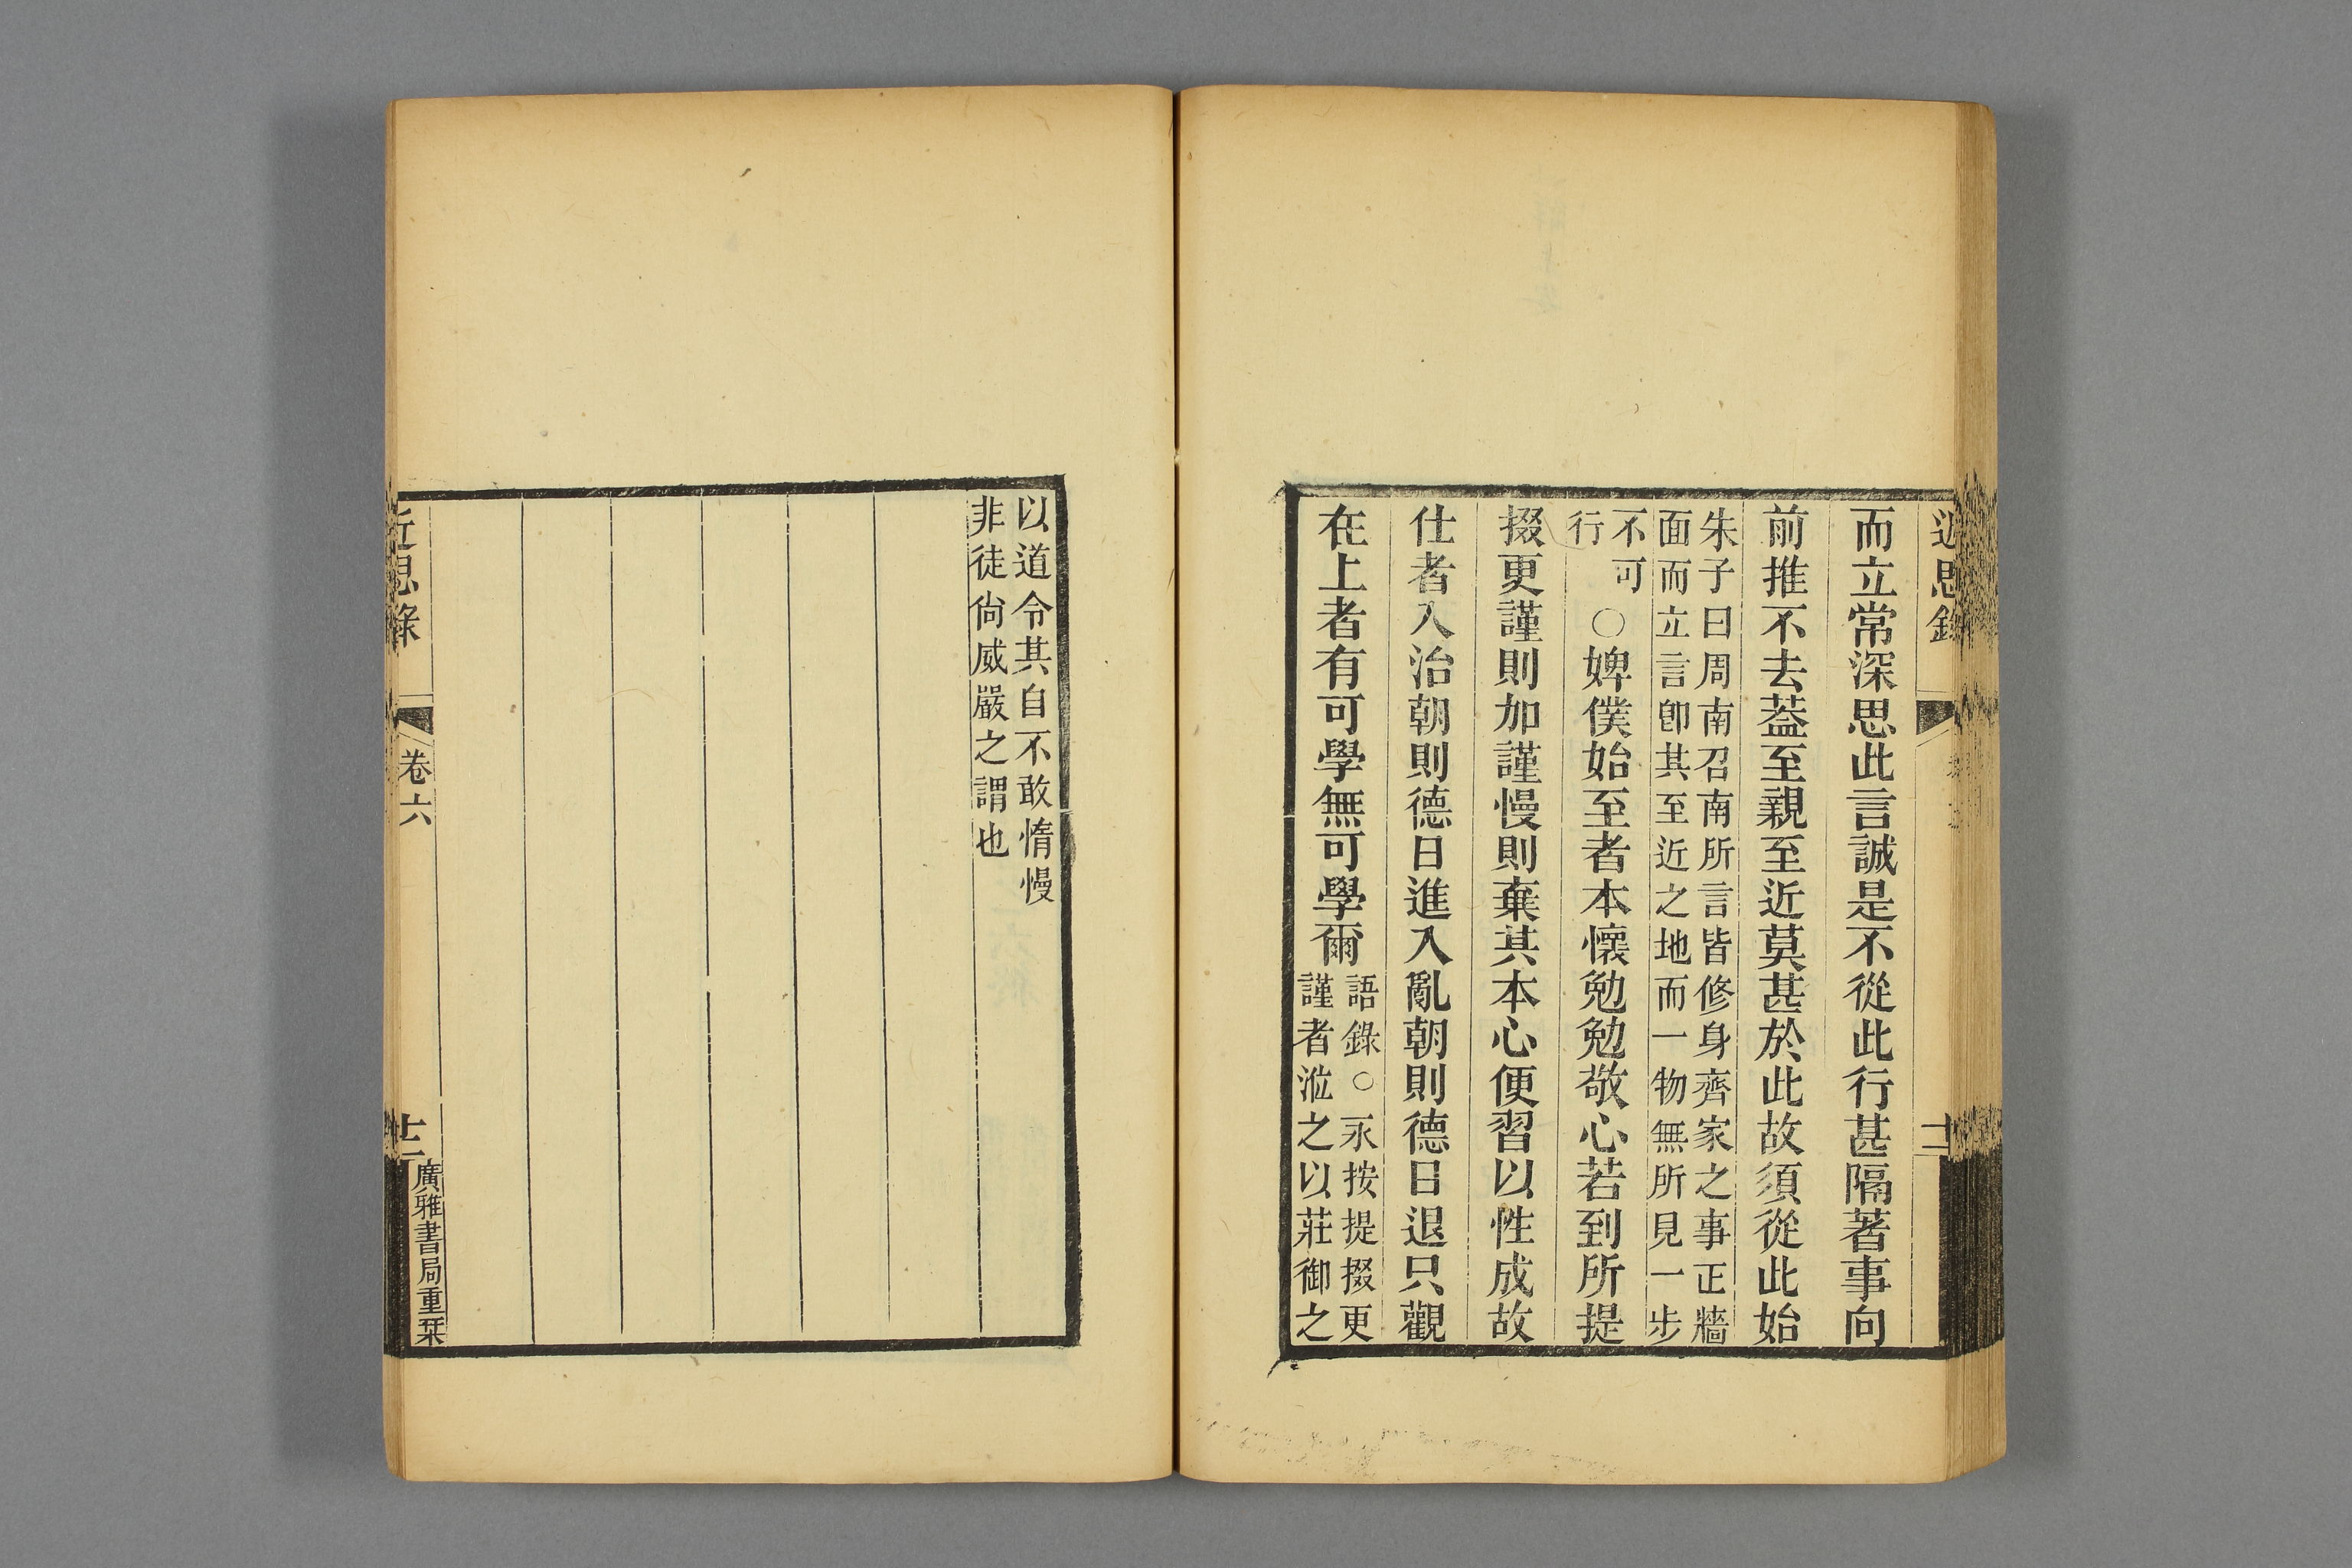 近思錄
而立常深思此言誠是不從此行甚隔著事向
前推不去葢至親至近莫甚於此故須從此始
朱子曰周南召南所言皆修身齊家之事正牆
面而立言卽其至近之地而一物無所見一步
不可
行
○婢僕始至者本懷勉勉敬心若到所提
掇更謹則加謹慢則棄其本心便習以性成故
仕者入治朝則德日進入亂朝則德日退只觀
在上者有可學無可學爾
語錄○永按提掇更
謹者涖之以莊御之
以道令其自不敢惰慢
非徒尙威嚴之謂也
近思錄
卷六
十二
廣雅書局重栞